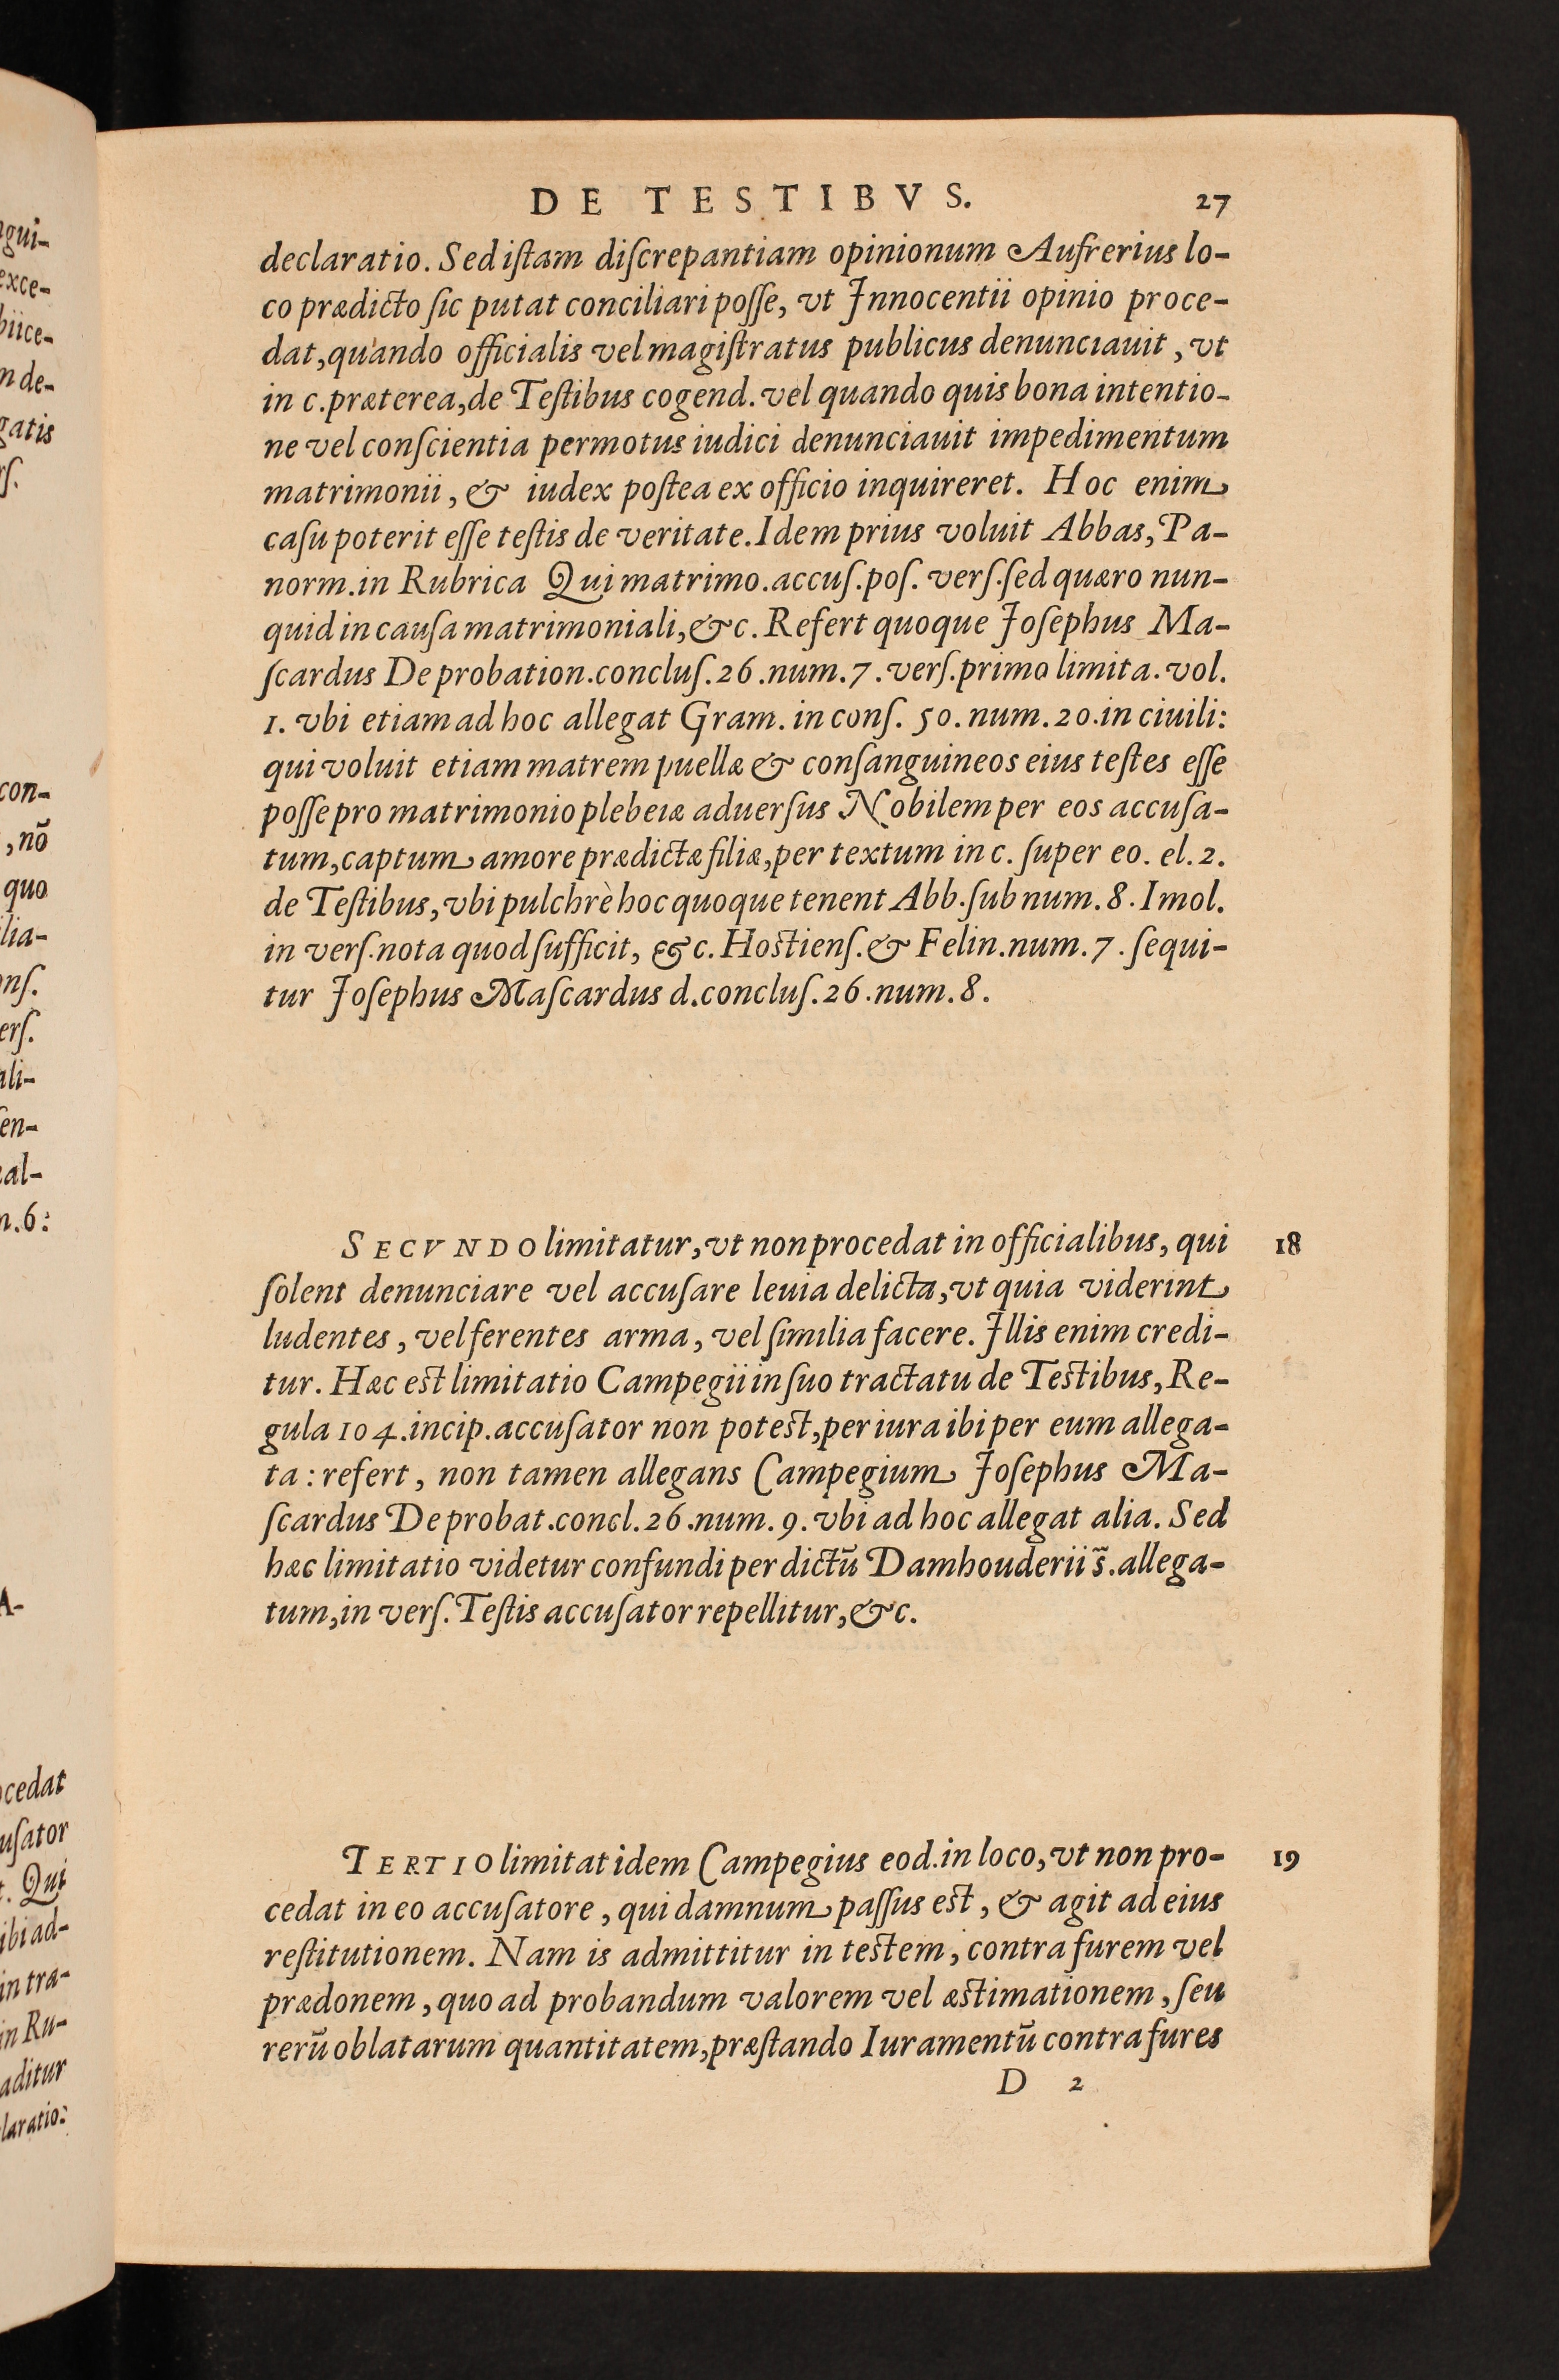 DE TESTIBVS. 27
declaratio. Sed iſtam diſcrepantiam opinionum Aufrerius lo-
co prædicto ſic putat conciliari poſſe, vt Innocentii opinio proce-
dat, quando officialis vel magiſtratus publicus denunciauit, vt
in c. præterea, de Teſtibus cogend. vel quando quis bona intentio-
ne vel conſcientia permotus iudici denunciauit impedimentum
matrimonii, & iudex poſtea ex officio inquireret. Hoc enim
caſu poterit eſſe teſtis de veritate. Idem prius voluit Abbas, Pa-
norm. in Rubrica Qui matrimo. accuſ. poſ. verſ. ſed quæro nun-
quid in cauſa matrimoniali, &c. Refert quoque Ioſephus Ma-
ſcardus De probation. concluſ. 26. num. 7. verſ. primo limita. vol.
1. vbi etiam ad hoc allegat Gram. in conſ. 50. num. 20. in ciuili:
qui voluit etiam matrem puellæ & conſanguineos eius teſtes eſſe
poſſe pro matrimonio plebeiæ aduerſus Nobilem per eos accuſa-
tum, captum amore prædictæ filiæ, per textum in c. ſuper eo. el. 2.
de Teſtibus, vbi pulchrè hoc quoque tenent Abb. ſub num. 8. Imol.
in verſ. nota quod ſufficit, &c. Hoſtienſ. & Felin. num. 7. ſequi-
tur Ioſephus Maſcardus d. concluſ. 26. num. 8.
SECVNDO limitatur, vt non procedat in officialibus, qui 18
ſolent denunciare vel accuſare leuia delicta, vt quia viderint
ludentes, vel ferentes arma, vel ſimilia facere. Illis enim credi-
tur. Hæc eſt limitatio Campegii in ſuo tractatu de Teſtibus, Re-
gula 104. incip. accuſator non poteſt, per iura ibi per eum allega-
ta: refert, non tamen allegans Campegium Ioſephus Ma-
ſcardus De probat. concl. 26. num. 9. vbi ad hoc allegat alia. Sed
hæc limitatio videtur confundi per dictū Damhouderii s̃. allega-
tum, in verſ. Teſtis accuſator repellitur, &c.
TERTIO limitat idem Campegius eod. in loco, vt non pro- 19
cedat in eo accuſatore, qui damnum paſſus eſt, & agit ad eius
reſtitutionem. Nam is admittitur in teſtem, contra furem vel
prædonem, quo ad probandum valorem vel æſtimationem, ſeu
rerū oblatarum quantitatem, præſtando Iuramentū contra fures
D 2